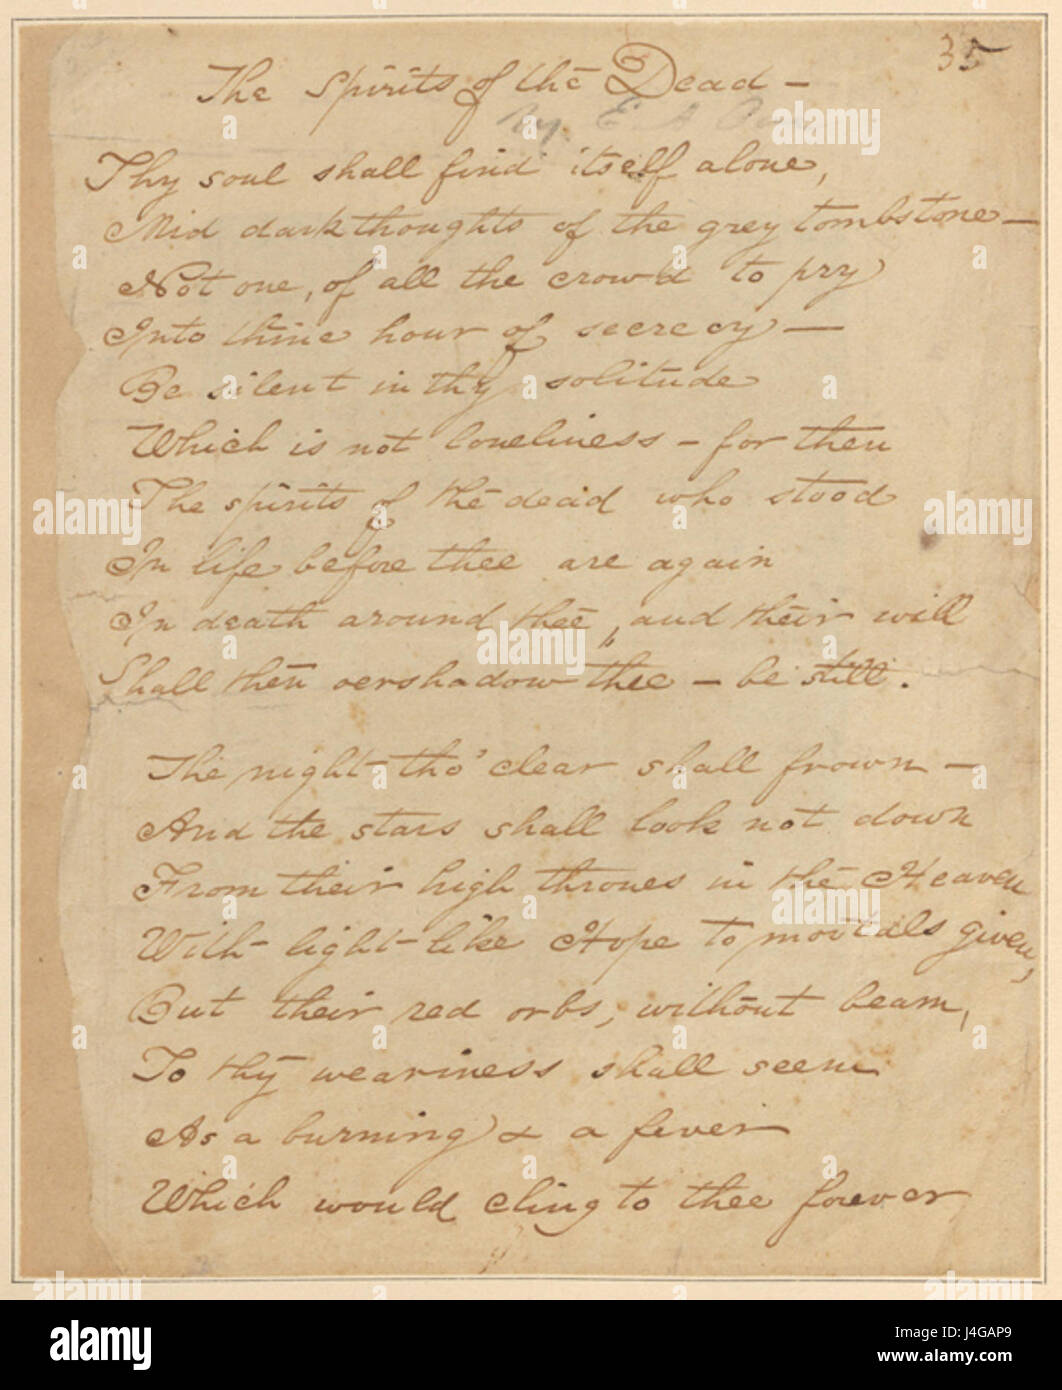 35
The Spirits of the Dead –
by E A Poe
Thy soul shall find itself alone,
Mid dark thoughts of the grey tombstone –
Not one, of all the crowd to pry
Into thine hour of secrecy –
Be silent in thy solitude
Which is not loneliness – for then
The spirits of the dead who stood
In life before thee are again
In death around thee, and their will
Shall then overshadow thee – be still.
The night tho' clear shall frown –
And the stars shall look not down
From their high thrones in the Heaven
With light like Hope to mortals given,
But their red orbs, without beam,
To thy weariness shall seem
As a burning & a fever
Which would cling to thee forever
alamy
Image ID: J4GAP9
www.alamy.com